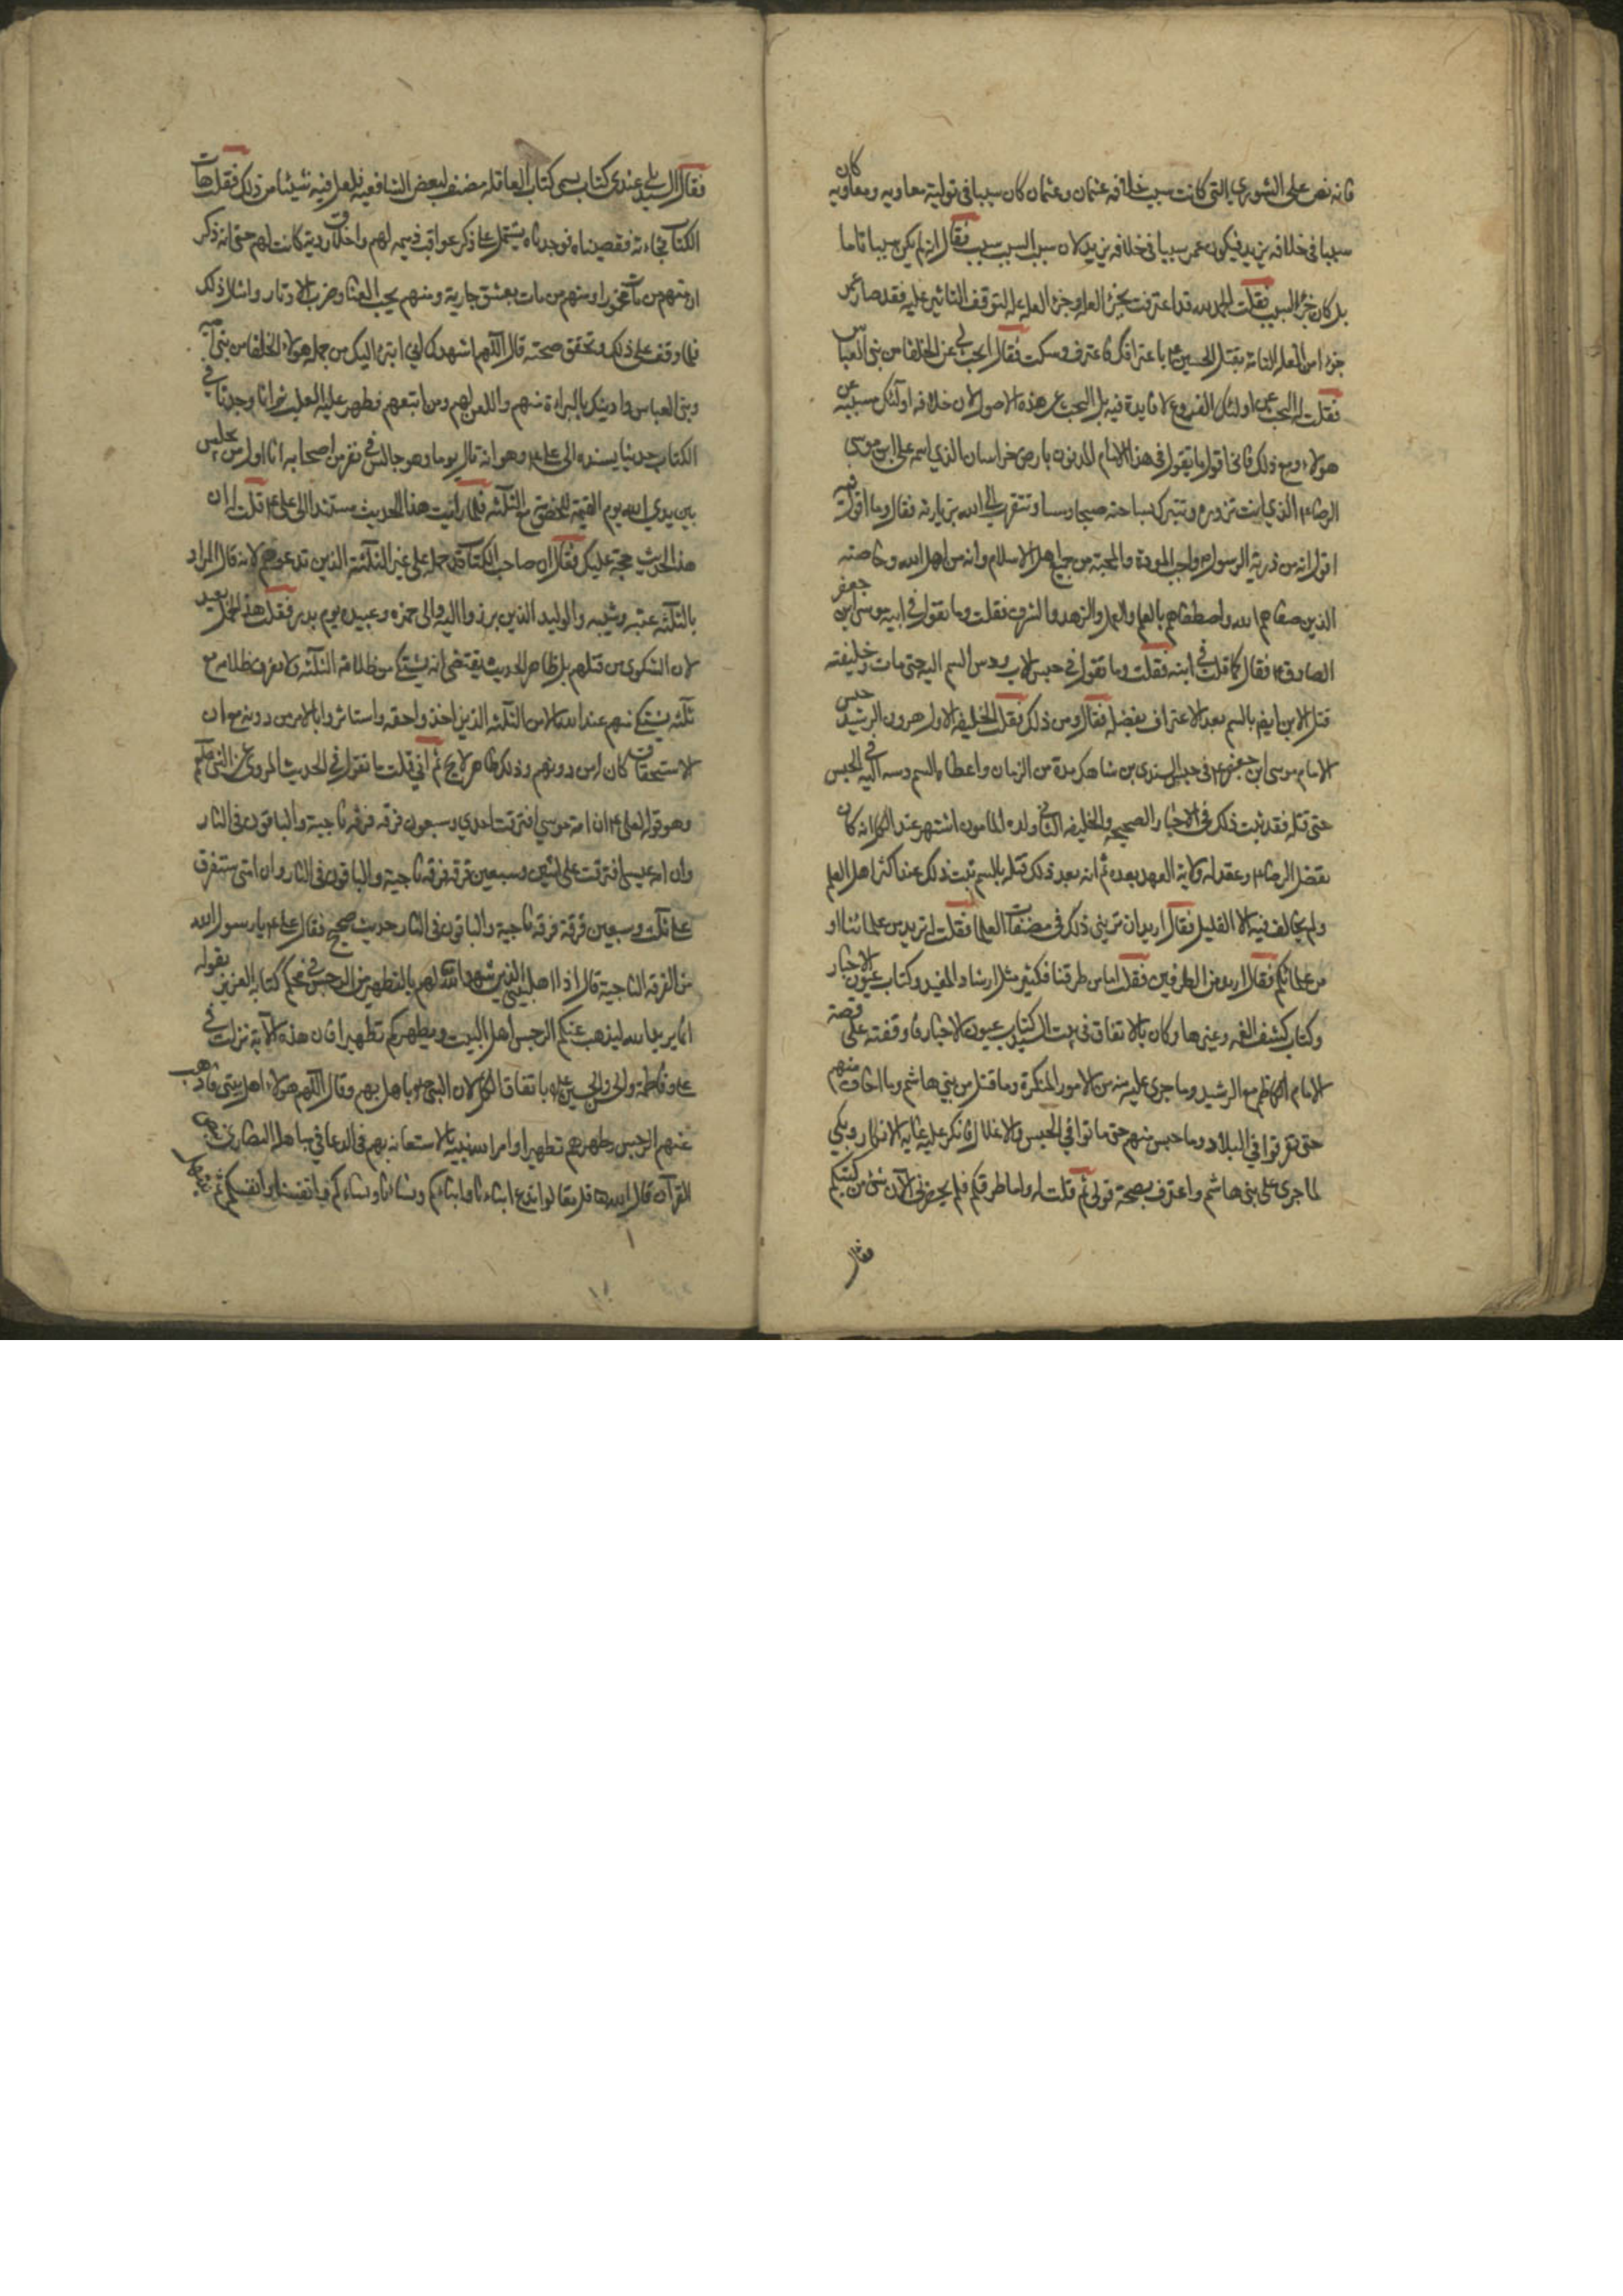 فانه نص على الشورى التى كانت سبب خلافه عثمان وعثمان كان سببا فى تولية معاويه ومعاويه كان
سببا فى خلافه يزيد فيكون عمر سببا فى خلافه يزيد لان سبب السبب سبب فقال انه لم يكن سببا تاما
بل كان جزء السبب فقلت الحمد لله قد اعترفت بجزء العله وجزء العله عله لتوقف التاثير عليه فقد صار عمر
جزءا من العله التامه بقتل الحسين ع باعترافك فاعترف وسكت فقال ابحث لى عن الخلفا من بنى العباس
فقلت له البحث عن اولئك الفروع لا فايدة فيه بل البحث عن هذه الاصول لان خلافه اولئك مسببه عن
هولاء ومع ذلك فانا اقول ما تقول فى هذا الامام المدفون بارض خراسان الذي اسمه على ابن موسى
الرضا ع الذي انت تزوره وتتبرك بساحته صباحا ومساء وتتقرب الى الله بزيارته فقال وما اقول فيه
اقول انه من ذرية الرسول ص واجب المودة والمحبة من جميع اهل الاسلام وانه من اهل الله وخاصته
الذين صفاهم الله واصطفاهم بالعلم والعمل والزهد والشرف فقلت وما تقول فى ابيه موسى ابن جعفر
الصادق ع فقال كما قلت فى ابنه فقلت وما تقول فى حبس الاب ودس السم اليه حتى مات وخليفته
قتل الابن ايضا بالسم بعد الاعتراف بفضله فقال ومن ذلك فقلت الخليفه الاول هرون الرشيد حبس
الامام موسى ابن جعفر ع فى حبس السندى بن شاهك مدة من الزمان واعطاه السم ودسه اليه فى الحبس
حتى قتله فقد ثبت ذلك فى الاخبار الصحيحه والخليفه الثانى ولده المامون اشتهر عند الكل انه كان
يفضل الرضا ع وعقد له ولاية العهد بعده ثم انه بعد ذلك قتله بالسم ثبت ذلك عند اكثر اهل العلم
ولم يخالف فيه الا القليل فقال اريد ان ترينى ذلك فى مصنفات العلما فقلت له تريد من علمائنا او
من علمائكم فقال اريد من الطرفين فقلت اما من طرقنا فكثير مثل ارشاد المفيد وكتاب عيون الاخبار
وكتاب كشف الغمه وغيرها وكان بالاتفاق فى بيت السيد كتاب عيون الاخبار فاوقفته على قصة
الامام الكاظم مع الرشيد وما جرى عليه منه من الامور المنكرة وما قتل من بني هاشم وما اخاف منهم
حتى تفرقوا في البلاد وما حبس منهم حتى ماتوا في الحبس والاغلال فانكر عليه غاية الانكار وبكى
لما جرى على بنى هاشم واعترف بصحة قولى ثم قلت له واما طرقكم فلم يحضرنى الان شئ من كتبكم
فقال
فقال السيد بلى عندى كتاب يسمى كتاب العاقله مصنفه لبعض الشافعيه فلعل فيه شيئا من ذلك فقلت هات
الكتاب فجاء به فتصفحناه فوجدناه يشتمل على ذكر عواقب ذميمه لهم واخلاق ردية كانت لهم حتى انه ذكر
ان منهم من مات مخمورا ومنهم من مات بعشق جارية ومنهم يحب الغنا وضرب الاوتار وامثال ذلك
فلما وقف على ذلك وتحقق صحته قال اللهم اشهدك انى ابرء اليك من جمله هولاء الخلفا من بنى اميه
وبنى العباس وادينك بالبراءة منهم واللعن لهم ومن اتبعهم فظهر عليه الغلب ثم انا وجدنا فى
الكتاب حديثا يسنده الى على ع وهو انه قال يوما وهو جالس فى نفر من اصحابه انا اول من يجلس
بين يدي الله يوم القيمة للخصومة مع الثلثه فلما رايت هذا الحديث مستندا الى على ع قلت له ان
هذا الحديث حجة عليك فقال ان صاحب الكتاب قد حمله على غير الثلثة الذين تدعونهم لانه قال المراد
بالثلثه عتبه وشيبه والوليد الذين برزوا اليه والى حمزه وعبيده يوم بدر فقلت هذا الحمل بعيد
لان الشكوى من قتلهم بل ظاهر الحديث يقتضى انه يشتكى من ظلامة الثلثه ولا نعرف ظلامه مع
ثلثه يشتكى منهم عند الله الا من الثلثه الذين اخذوا حقه واستاثروا بالامر من دونه مع ان
الاستحقاق كان له من دونهم وذلك ظاهر لايح ثم انى قلت ما تقول فى الحديث المروى عن النبى ص
وهو قوله لعلى ع ان امة موسى افترقت احدى وسبعون فرقه فرقه ناجية والباقون فى النار
وان امة عيسى افترقت على اثنين وسبعين فرقه فرقه ناجية والباقون فى النار وان امتى ستفرق
على ثلث وسبعين فرقة فرقه ناجية والباقون فى النار حديث صحيح فقال على ع يا رسول الله
من الفرقه الناجية قال اذا اهل بيتى الذين شهد الله لهم بالتطهير من الرجس فى محكم كتابه العزيز بقوله
انما يريد الله ليذهب عنكم الرجس اهل البيت ويطهركم تطهيرا فان هذه الاية نزلت فى
على وفاطمة والحسن والحسين ع باتفاق الكل لان النبى ص باهل بهم وقال اللهم هولاء اهل بيتى فاذهب
عنهم الرجس وطهرهم تطهيرا وامر الله نبيه بالاستعانه بهم فى الدعا فى مباهلة النصارى
القرآن قال الله تعالى قل تعالوا ندع ابناءنا وابناءكم ونساءنا ونساءكم وانفسنا وانفسكم ثم نبتهل